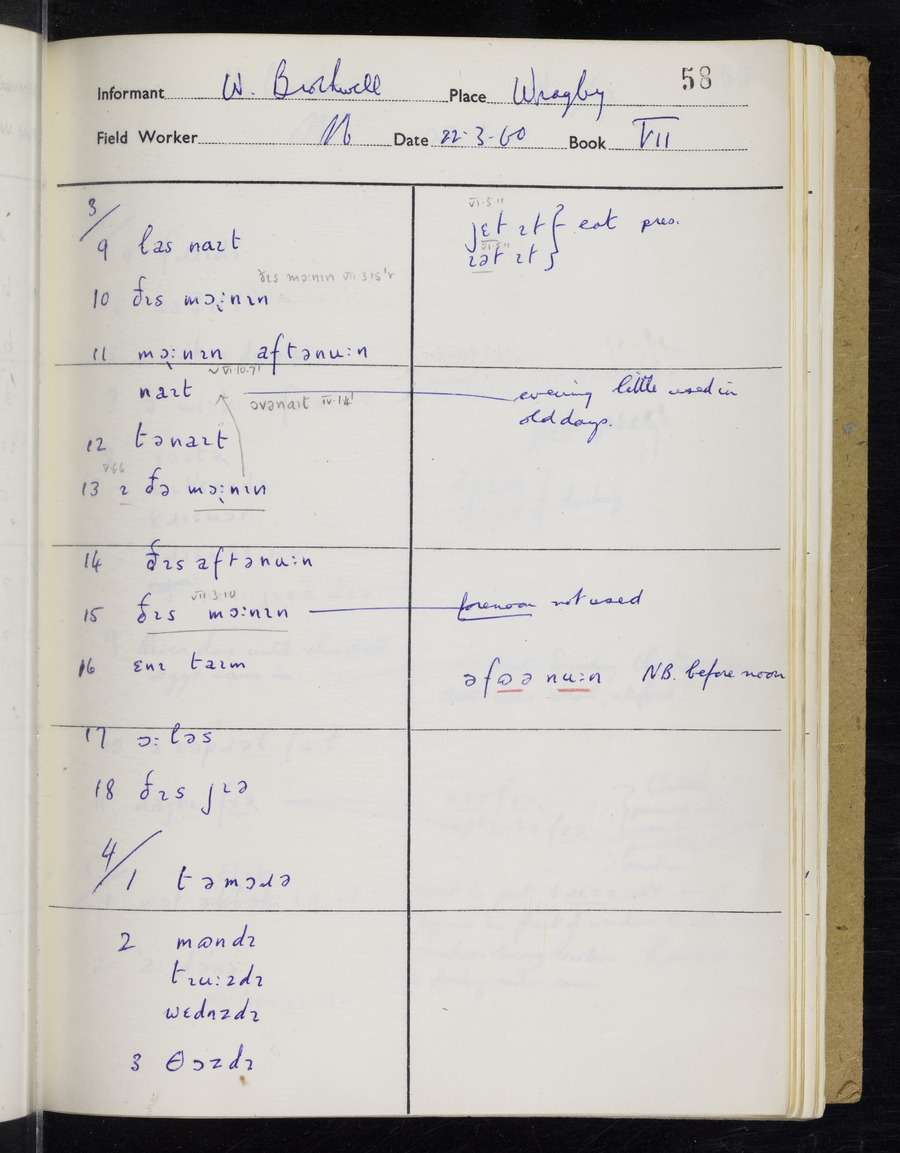 58
Informant W. Brothwell Place Wragby
Field Worker Date 22-3-60 Book VII
3/
9 las naɪt
10 ðɪs mɔ̨:nɪn
ðɪs mɔ:nɪn VII 3.15'r
11 mɔ̨:nɪn aftənu:n
naɪt
ovənaɪt IV.14'
12 tənaɪt
13 ɪ ðə mɔ̨:nɪn
14 ðɪs aftənu:n
VII.3.10
15 ðɪs mɔ:nɪn
16 ɛnɪ taɪm
17 ɔ:ləs
18 ðɪs jɪə
4/
1 təmɔɹə
2 mɷndɪ
tɪu:zdɪ
wɛdnzdɪ
3 θɔzdɪ
VI.5.11
jɛt ɪt } eat pres.
VI.5.11
ɪət ɪt }
evening little used in
old days.
forenoon not used
əfɷə nu:n NB. before noon